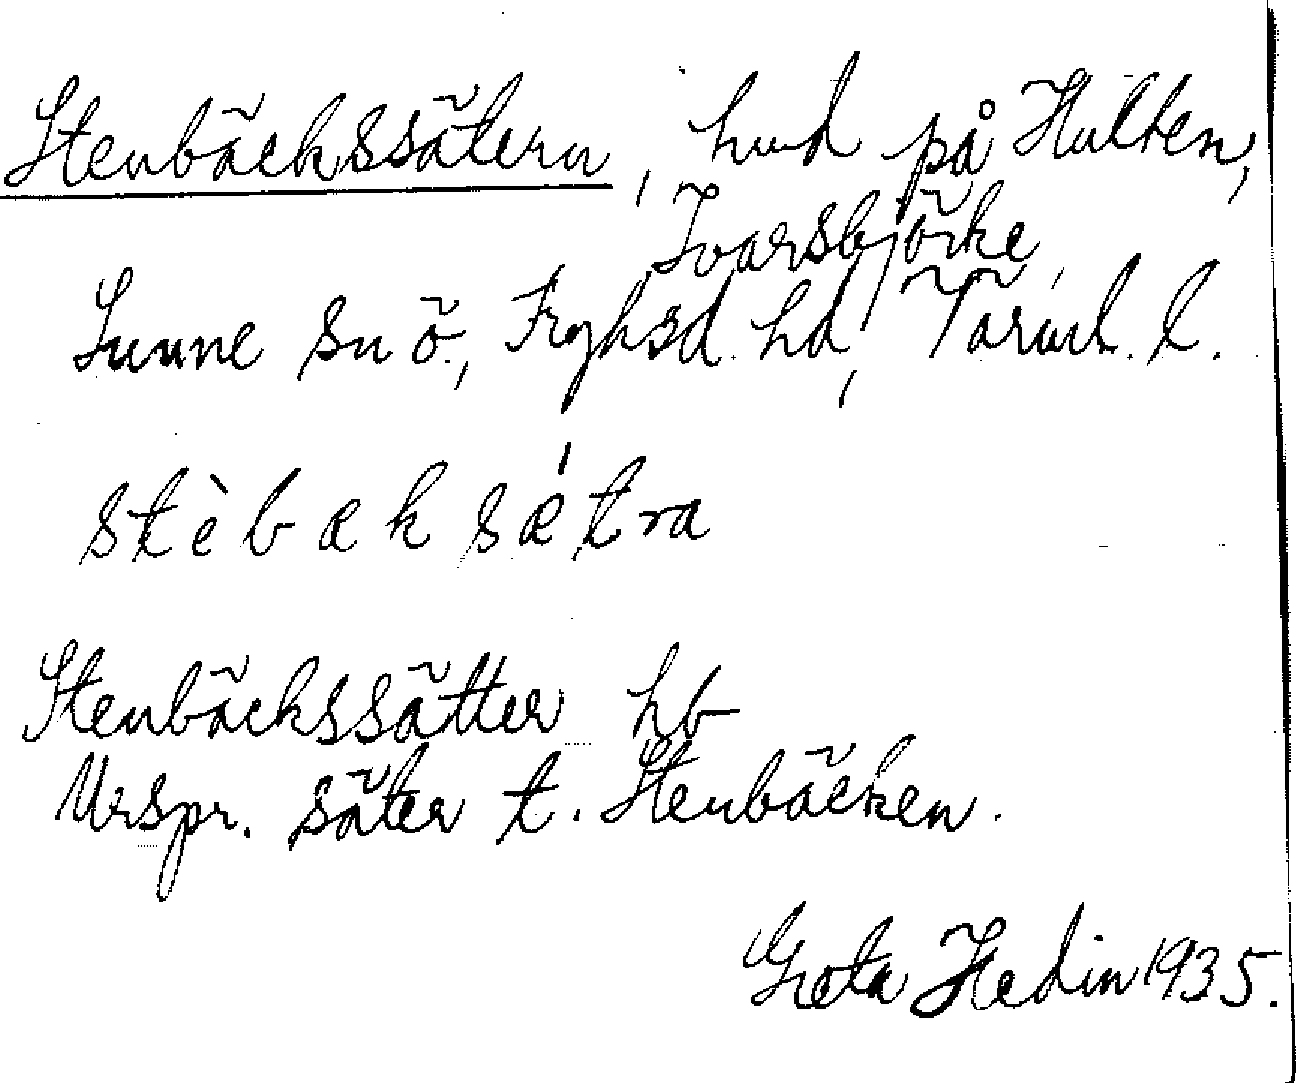 Stenbäckssätern, hmd på Hulten,
Ivarsbjörke,
Sunne sn ö., Fryksd. hd, Värml. l.
stèbæksǽtra
Stenbäckssätter hb
Urspr. säter t. Stenbäcken.
Greta Hedin 1935.